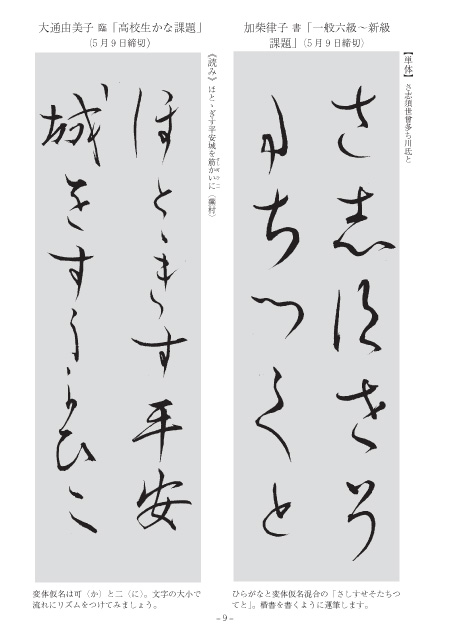 加柴律子 書「一般六級〜新級
課題」（5月9日締切）
【単体】 さ志須世曾多ち川氐と
さ志須せそ
たちつてと
ひらがなと変体仮名混合の「さしすせそたちつ
てと」。楷書を書くように運筆します。
大通由美子 臨「高校生かな課題」
（5月9日締切）
《読み》ほとゝぎす平安城を筋かいに （蕪村）
ほとゝきす平安
城をすうかひに
変体仮名は可〈か〉と二〈に〉。文字の大小で
流れにリズムをつけてみましょう。
－9－